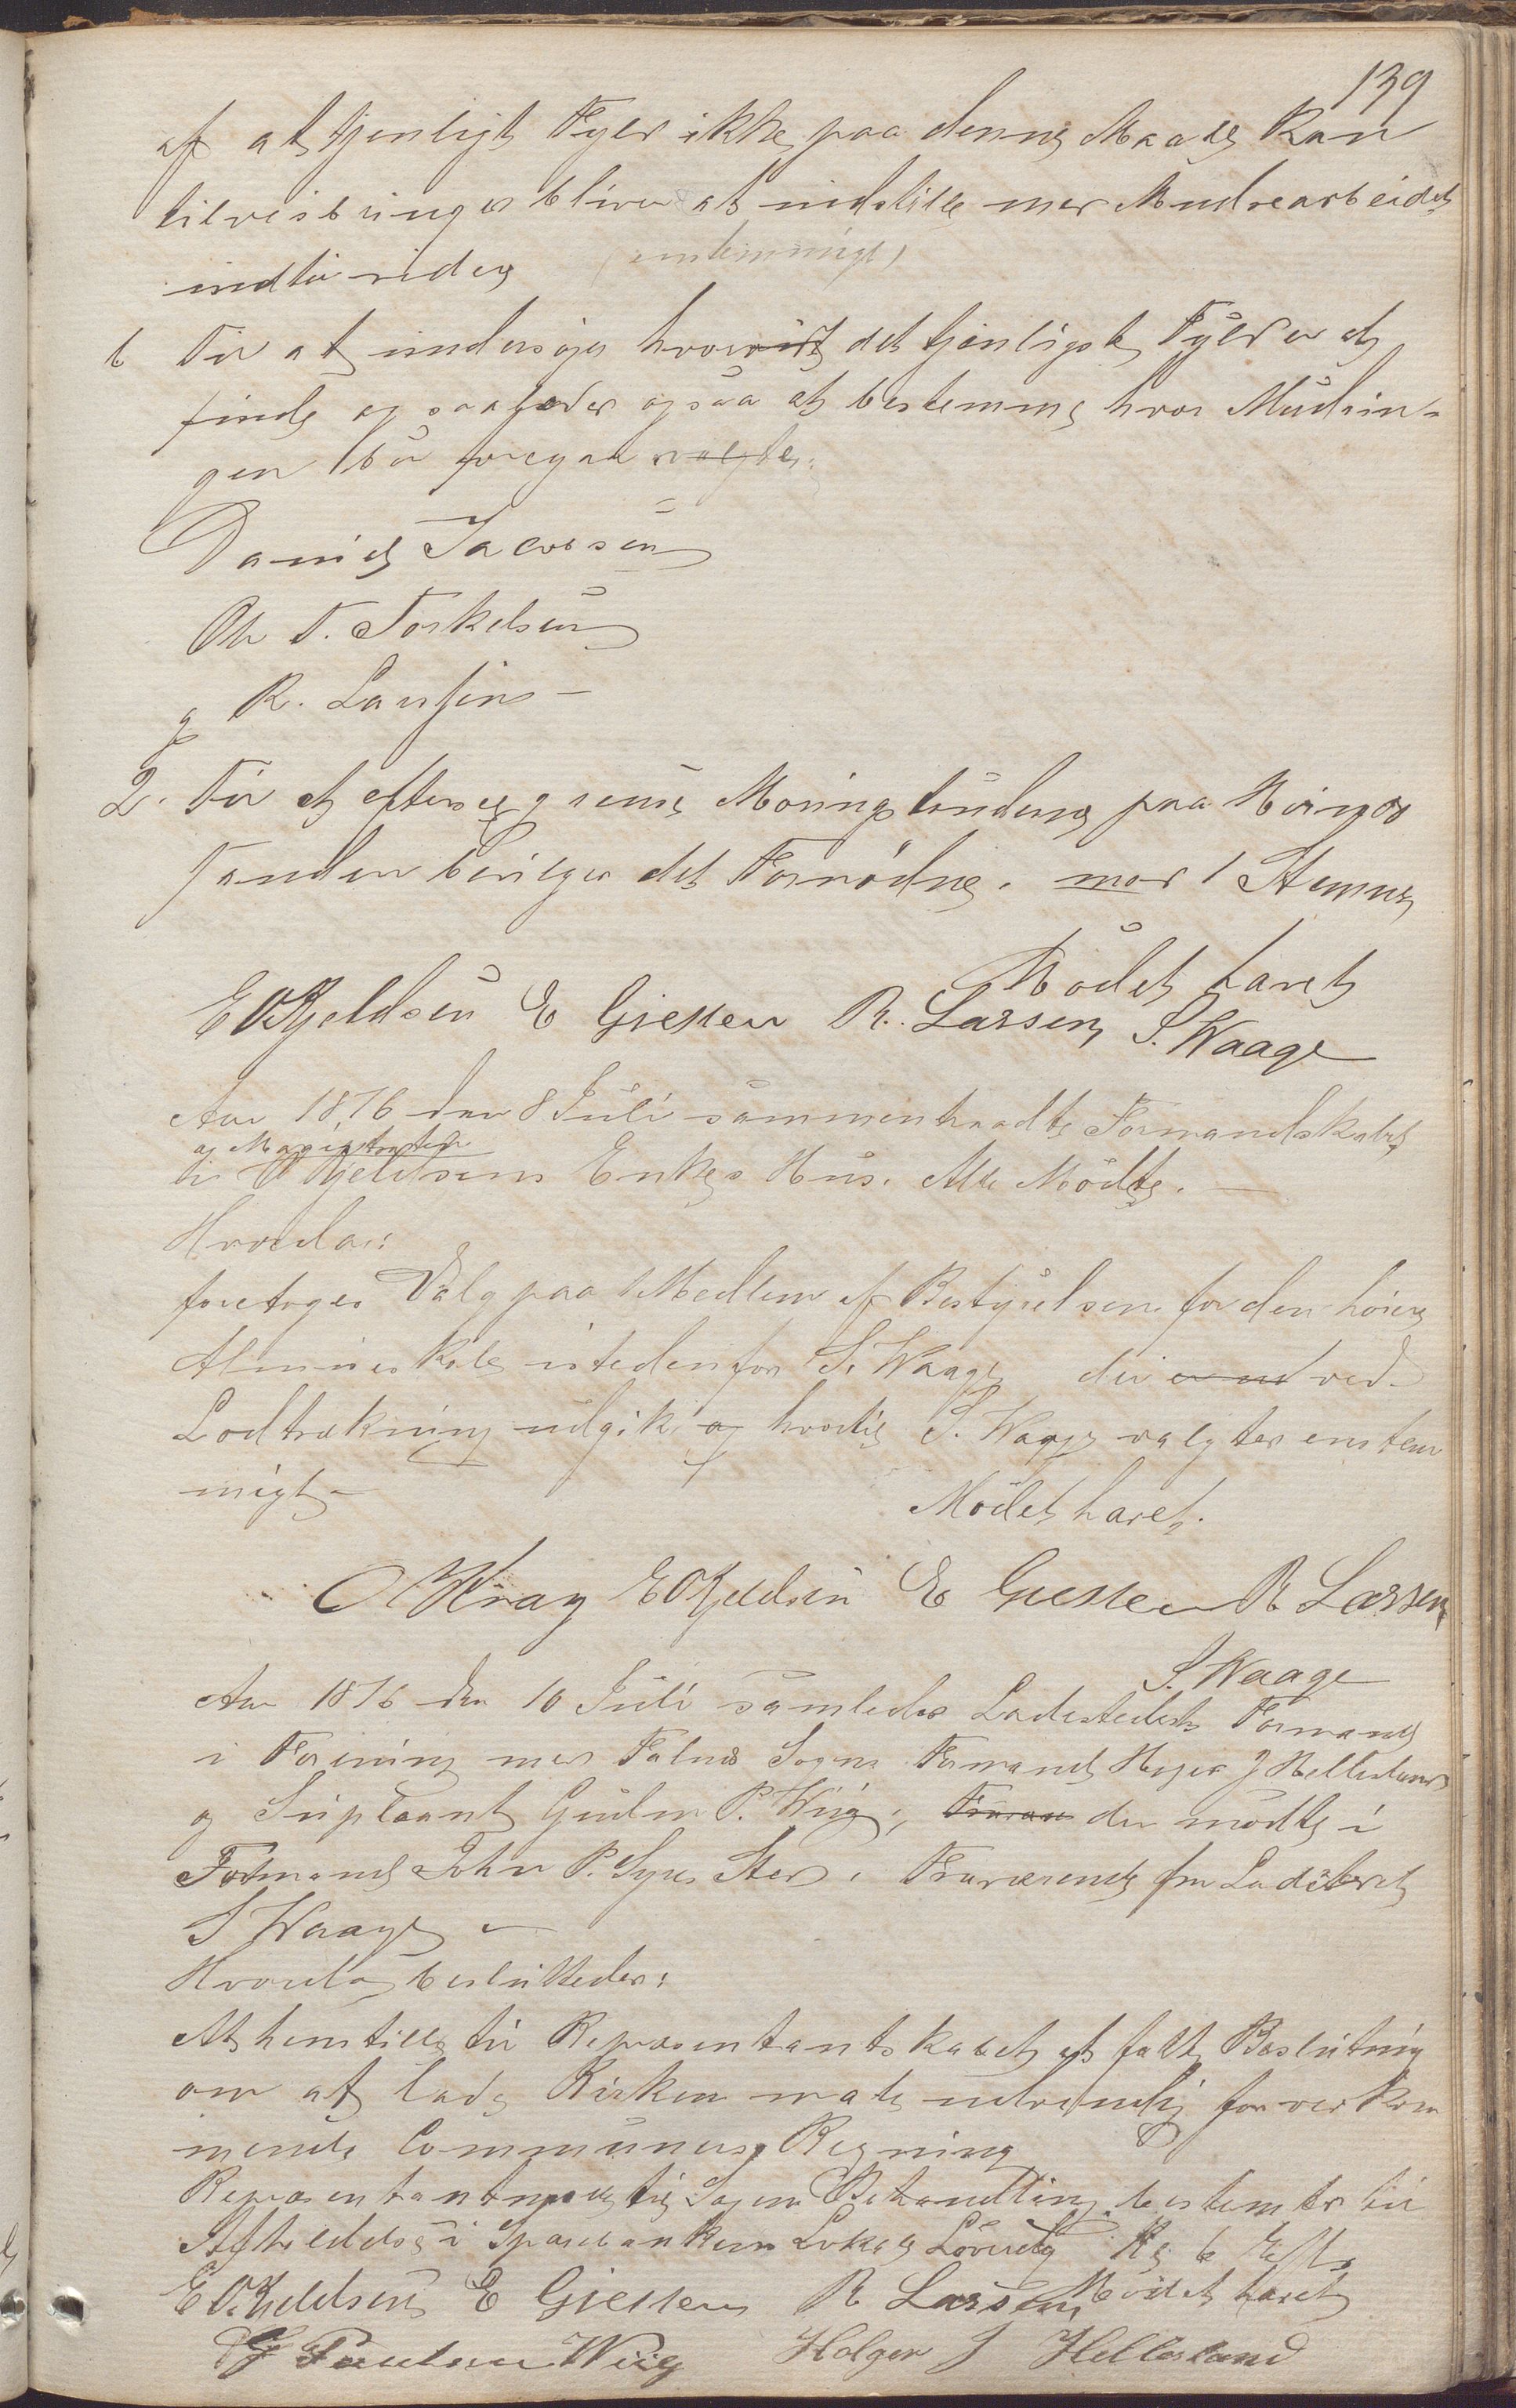 139
af at tjenligt Fyld ikke paa denne Maade kan
tilveiebringes bliver at indstille med Mudrearbeidet
indtil videre (enstemmigt)
b For at undersøge hvorvidt det tjenligste Fyld er at
finde og saaledes ogsaa at bestemme hvor Mudrin-
gen bør foregaa valgtes:
Daniel Jacobsen
Ole T. Torkelsen
og R. Larsen
2. For at efterse og rense Moringstønderne paa
bevilges det Fornødne. mod 1 Stemme
Mødet hævet
E O Kjeldsen E Gjessen R. Larsen S. Waage
Aar 1876 den 8 Juli sammentraadte Formandskabet
og Magistraten
i O Kjeldsens Enkes Hus. Alle Mødte.
Hvorda:
foretoges Valg paa 1 Medlem af Bestyrelsen for den høiere
Almueskole istedenfor S. Waage der ved
Lodtrækning udgik og hvortil S. Waage valgtes enstem
migt
Mødet hævet.
O Kray E O Kjeldsen E Gjessen R Larsen
S. Waage
Aar 1876 den 10 Juli samledes Ladestedets Formænd
i Forening med Sogns Formand Holger J Hellesland
og Supleant P. Wiig, der mødte i
Formand John P. Sted. Fraværende fra Ladestedet
S Waage
Hvorda besluttedes:
At henstille til Repræsentantskabet at fatte Beslutning
om at lade Kirken male udvendig for vedkom
mende Communers Regning
Repræsentantmøde til Sagens Behandling bestemtes til
Afholdelse i Sparebankens Lokale Løverdag Kl 6 Eftm
Mødet hævet
E O Kjeldsen E Gjessen R Larsen
Paulsen Wiig Holger J Hellesland